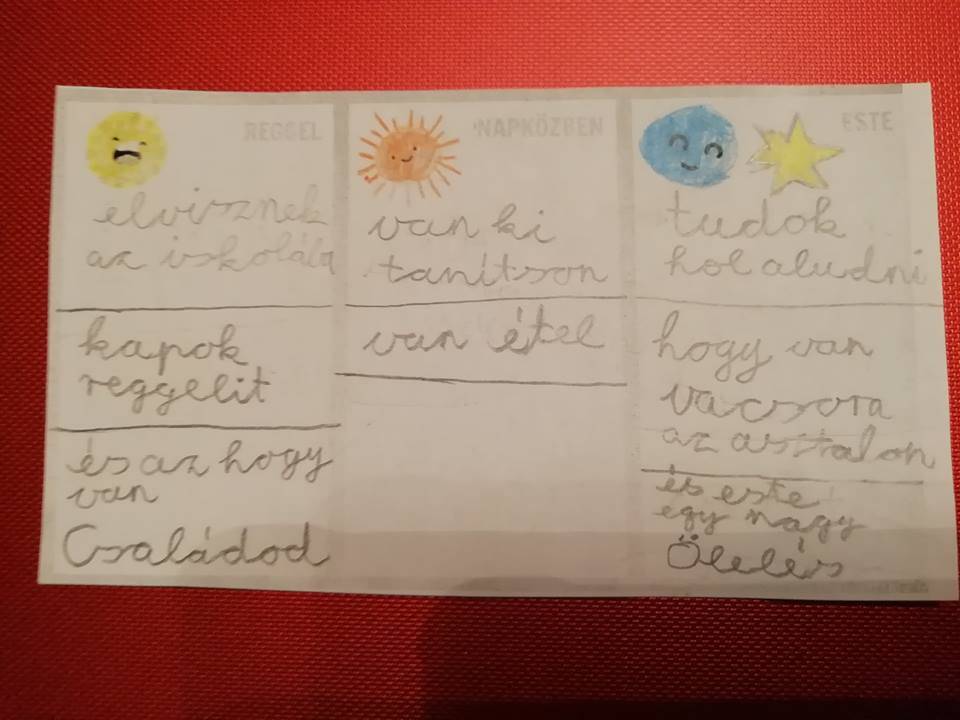 REGGEL
elvisznek
az iskolába
kapok
reggelit
és az hogy
van
Családod
NAPKÖZBEN
van ki
tanítson
van étel
ESTE
tudok
hol aludni
hogy van
vacsora
az asztalon
és este
egy nagy
Ölelés